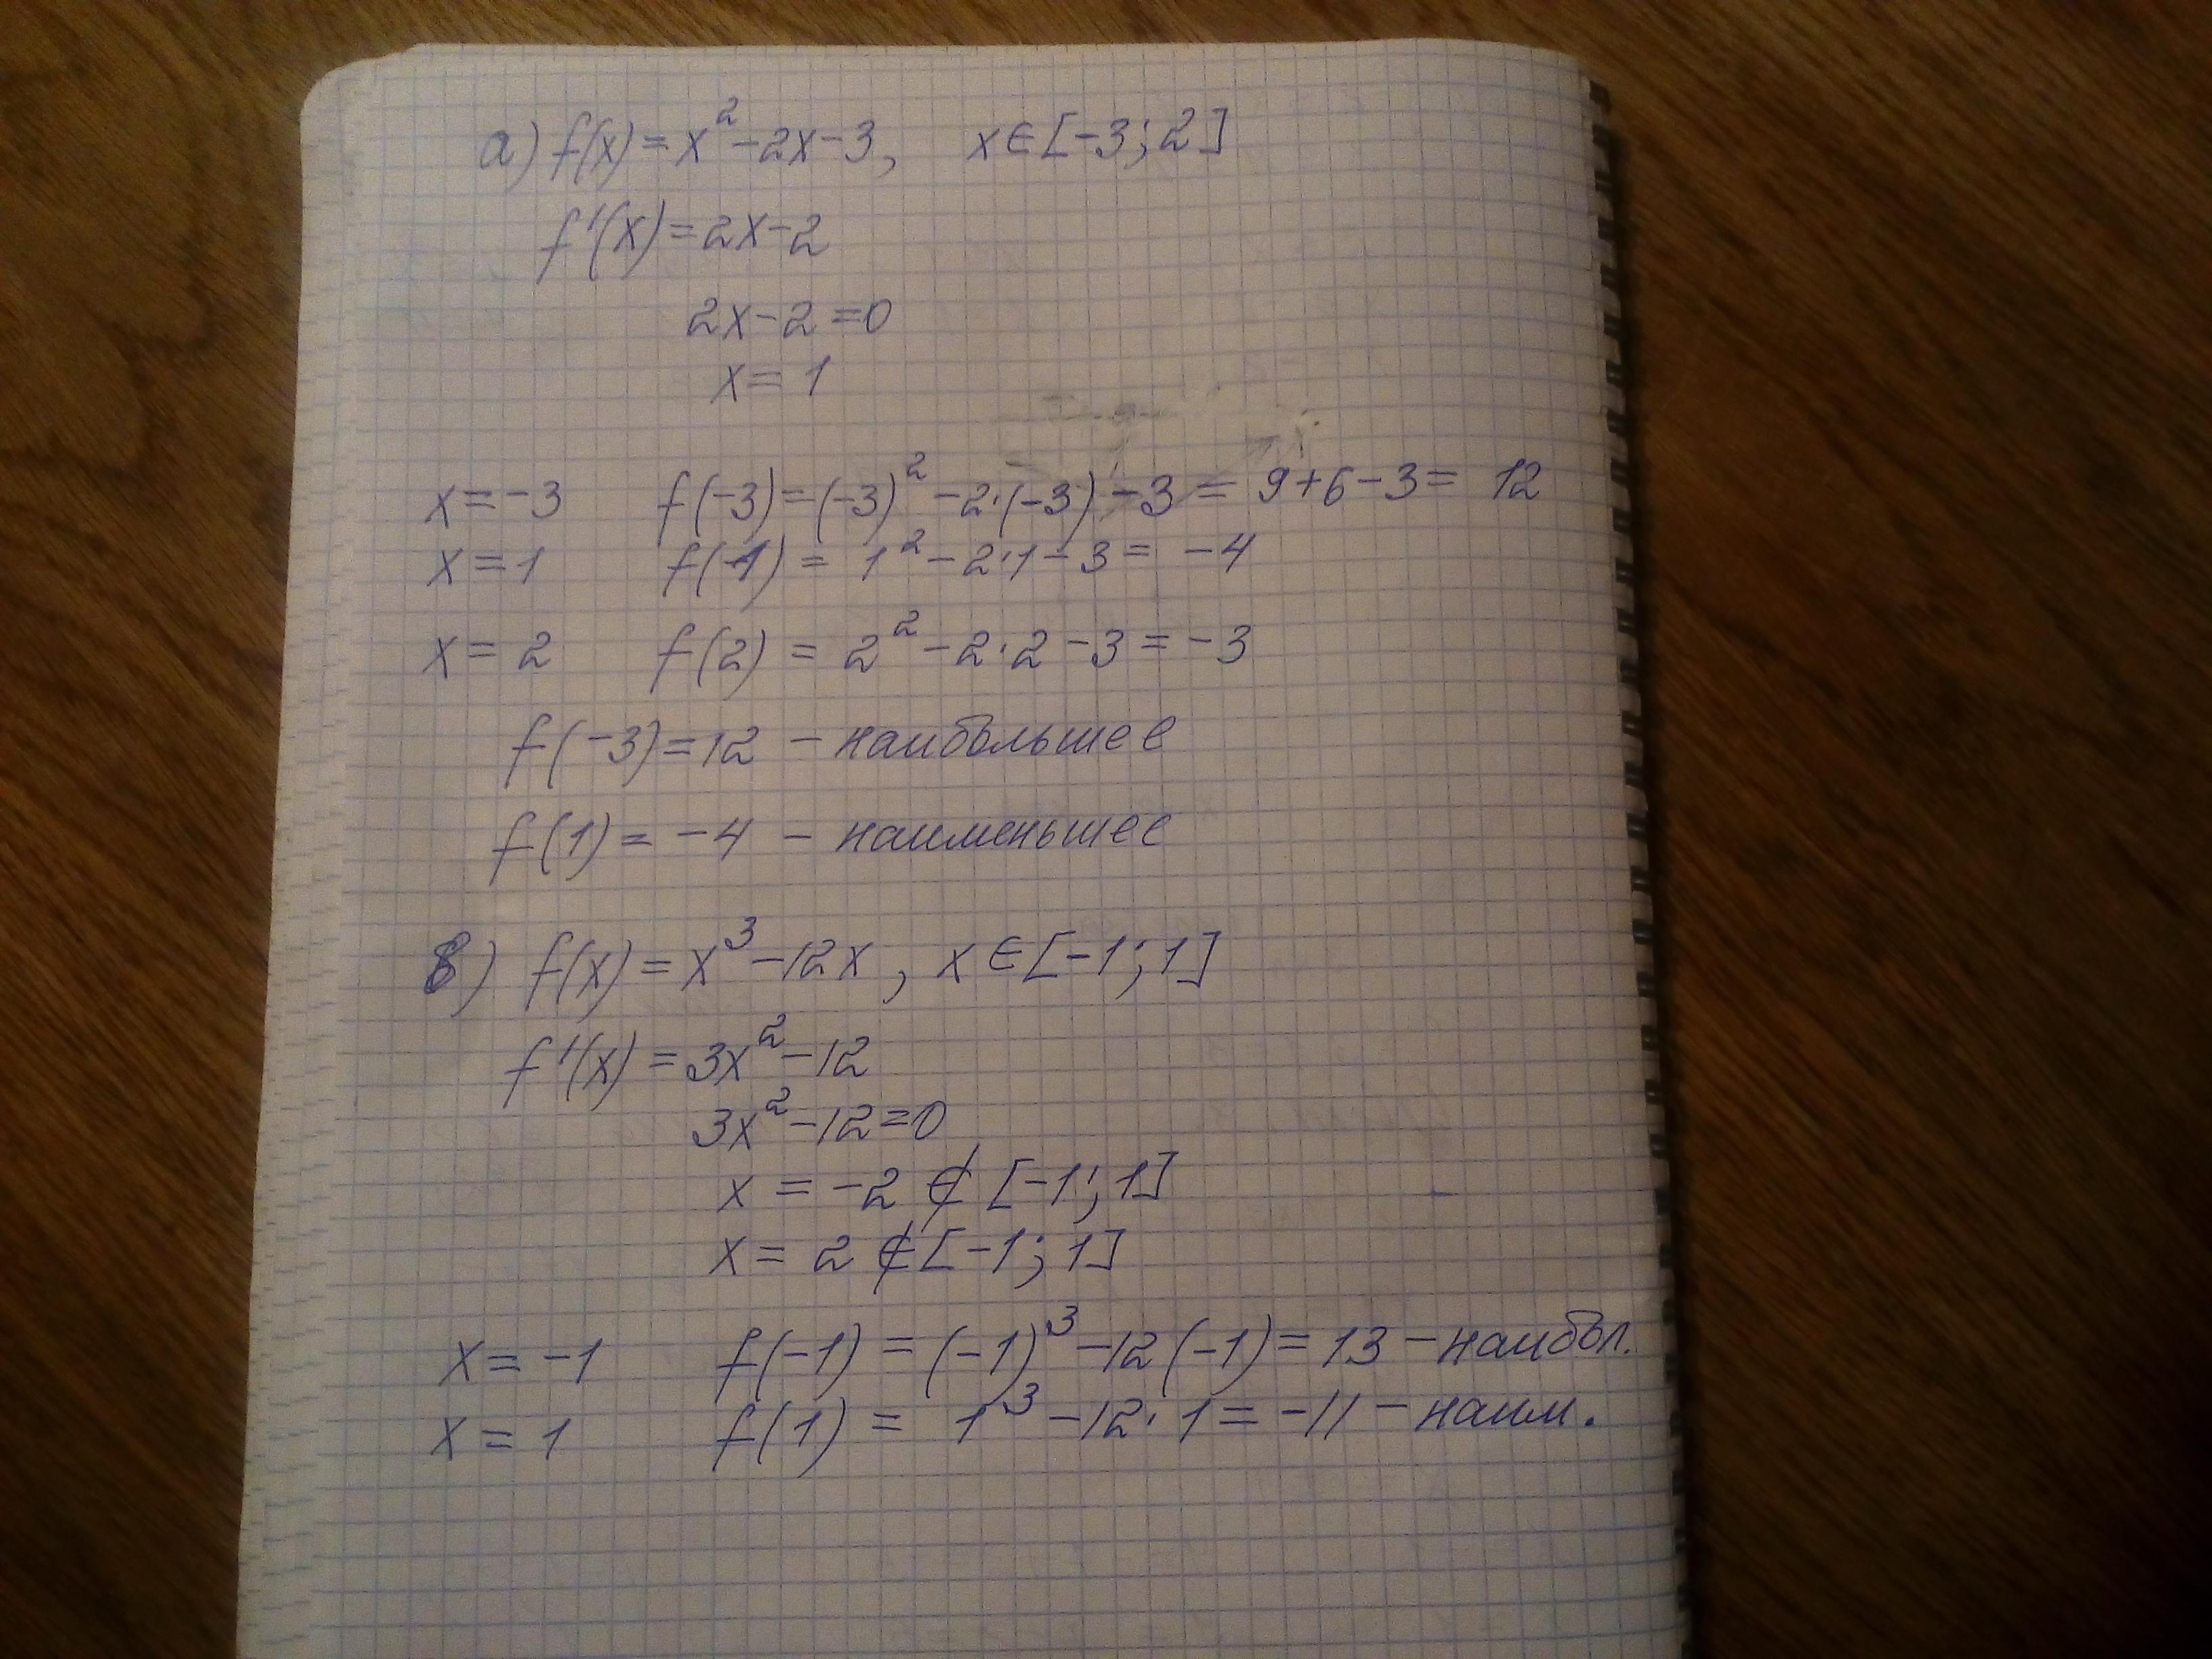 а) f(x) = x² - 2x - 3, x ∈ [-3; 2]
f'(x) = 2x - 2
2x - 2 = 0
x = 1
x = -3 f(-3) = (-3)² - 2·(-3) - 3 = 9 + 6 - 3 = 12
x = 1 f(1) = 1² - 2·1 - 3 = -4
x = 2 f(2) = 2² - 2·2 - 3 = -3
f(-3) = 12 - наибольшее
f(1) = -4 - наименьшее
в) f(x) = x³ - 12x, x ∈ [-1; 1]
f'(x) = 3x² - 12
3x² - 12 = 0
x = -2 ∉ [-1; 1]
x = 2 ∉ [-1; 1]
x = -1 f(-1) = (-1)³ - 12(-1) = 13 - наибол.
x = 1 f(1) = 1³ - 12·1 = -11 - наим.